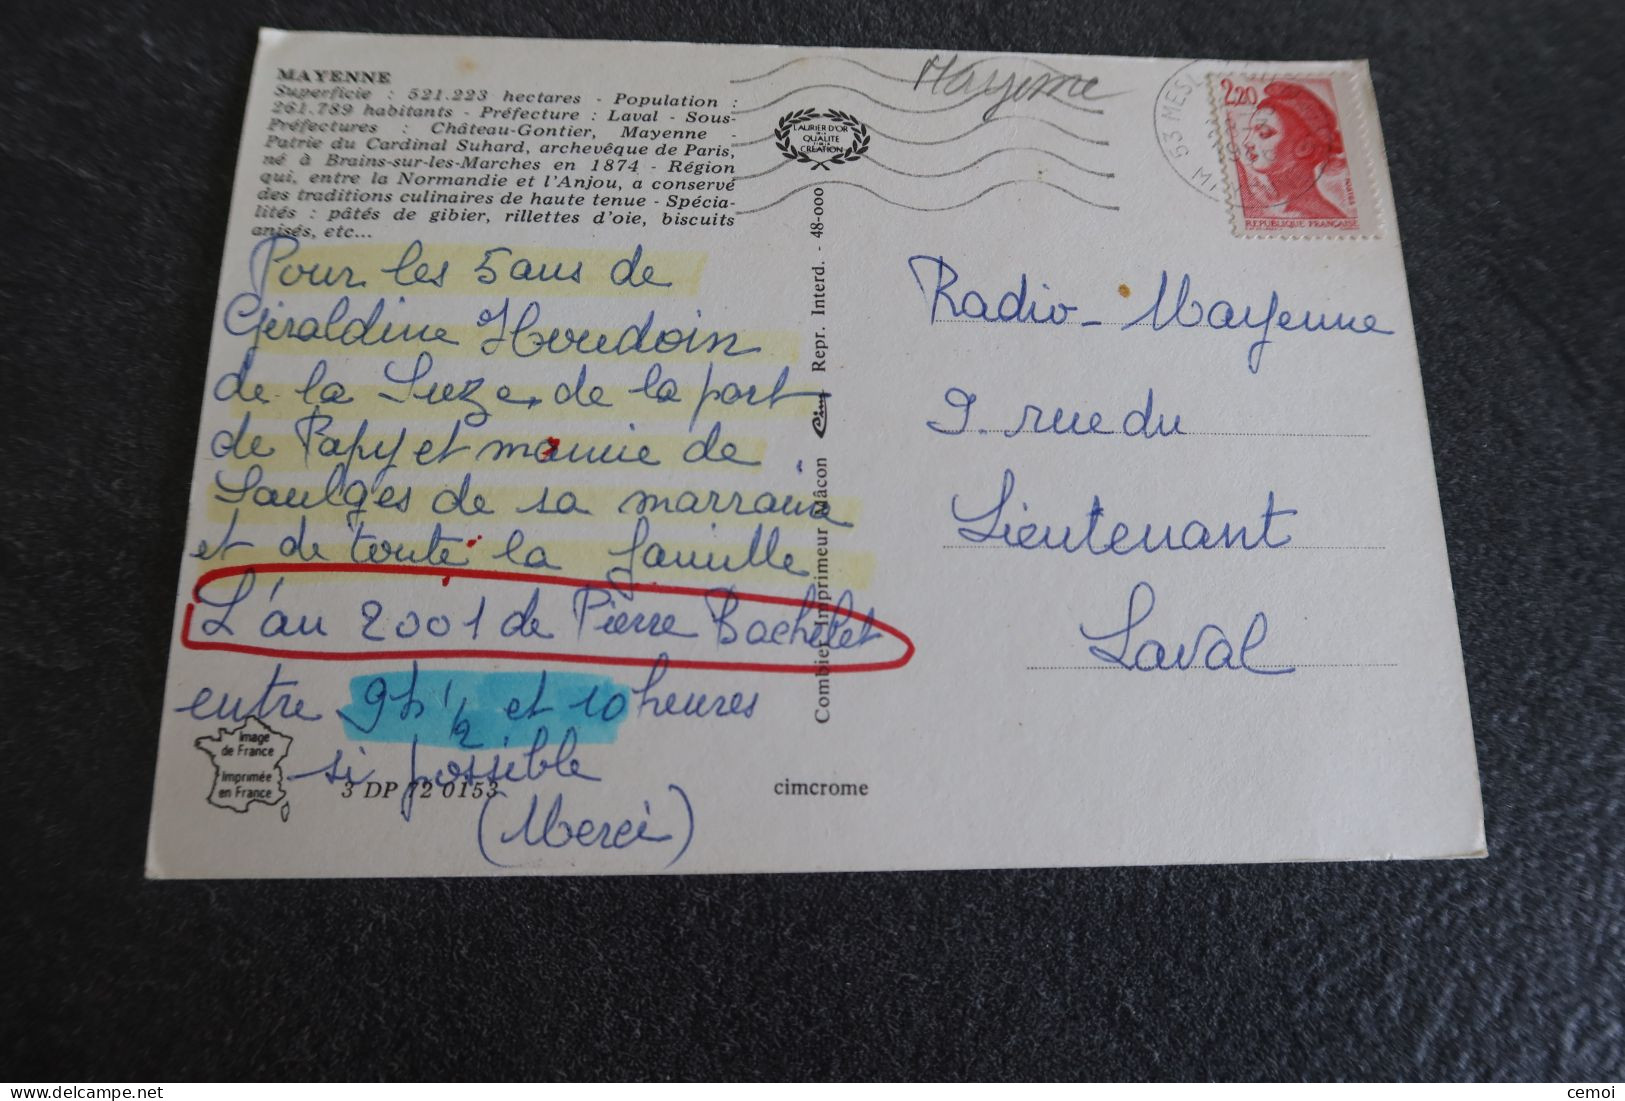 MAYENNE
Superficie : 521.223 hectares - Population :
261.789 habitants - Préfecture : Laval - Sous-
Préfectures : Château-Gontier, Mayenne -
Patrie du Cardinal Suhard, archevêque de Paris,
né à Brains-sur-les-Marches en 1874 - Région
qui, entre la Normandie et l'Anjou, a conservé
des traditions culinaires de haute tenue - Spécia-
lités : pâtés de gibier, rillettes d'oie, biscuits
anisés, etc...
Pour les 5 ans de
Géraldine Houdoin
de la Suze, de la part
de Papy et mamie de
Saulges de sa marraine
et de toute la famille
L'an 2001 de Pierre Bachelet
entre 9h 1/2 et 10 heures
si possible
(Merci)
Image
de France
Imprimée
en France
3 DP 72 0153
cimcrome
LAURIER D'OR
DE LA
QUALITÉ
CRÉATION
Combier Imprimeur Mâcon Cim Repr. Interd. - 48-000
Mayenne
53 MESL
2,20
REPUBLIQUE FRANÇAISE
Radio - Mayenne
9. rue du
Lieutenant
Laval
cemoi